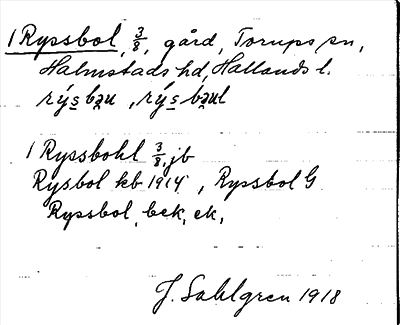 1 Ryssbol, 3/8, gård, Torups sn,
Halmstads hd, Hallands l.
rýs bau, rýs baul
1 Ryssbohl 3/8, jb
Rysbol kb 1914, Ryssbol G
Ryssbol, bck, ek,
J. Sahlgren 1918